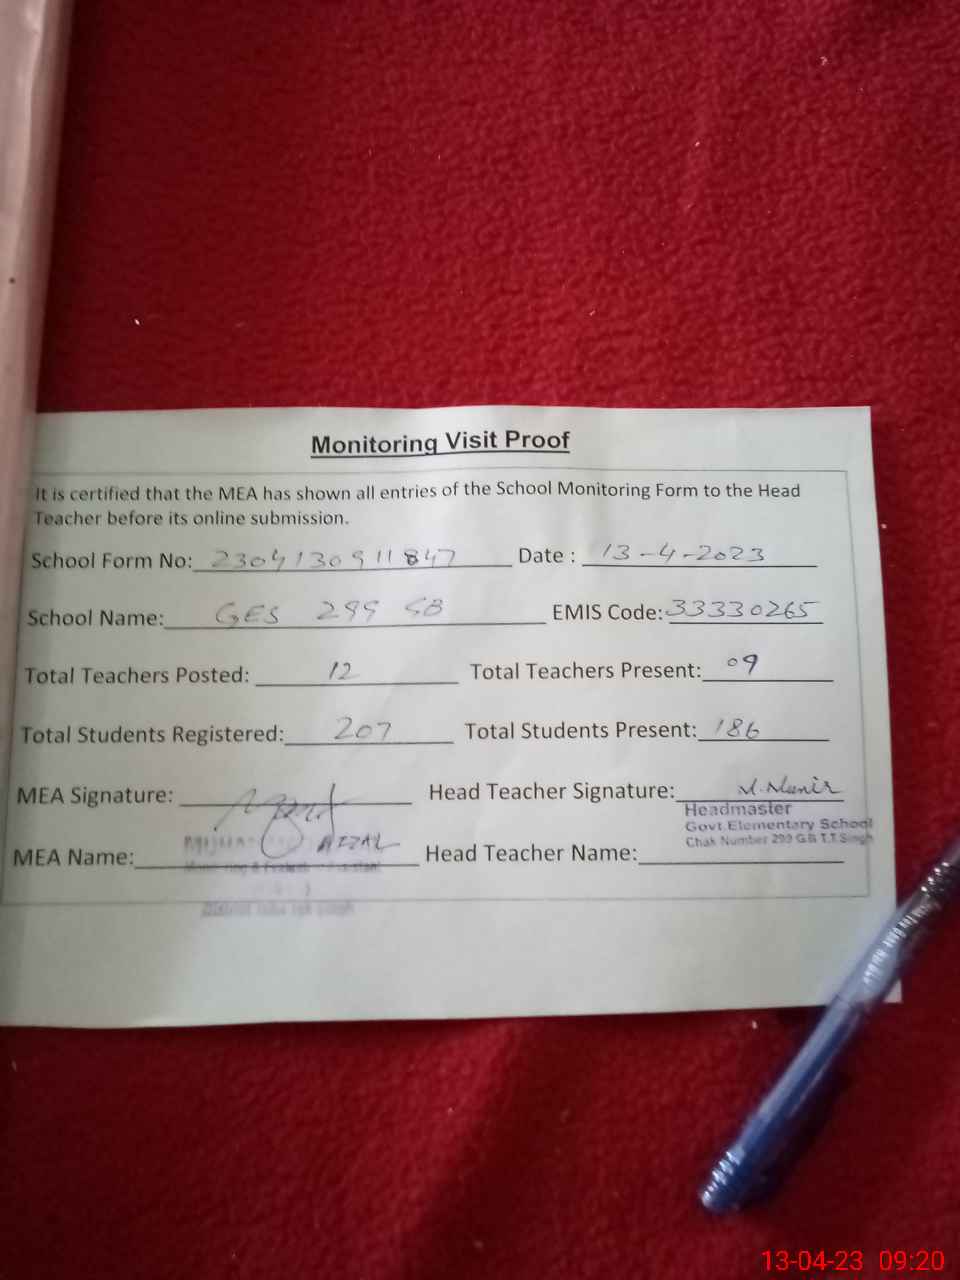 Monitoring Visit Proof
It is certified that the MEA has shown all entries of the School Monitoring Form to the Head
Teacher before its online submission.
School Form No: 2304130911847 Date : 13-4-2023
School Name: GES 299 GB EMIS Code: 33330265
Total Teachers Posted: 12 Total Teachers Present: 09
Total Students Registered: 207 Total Students Present: 186
MEA Signature: Head Teacher Signature: M. Munir
Headmaster
Govt. Elementary School
Chak Number 299 G.B T.T.Singh
MEA Name: AFZAL Head Teacher Name:
13-04-23 09:20